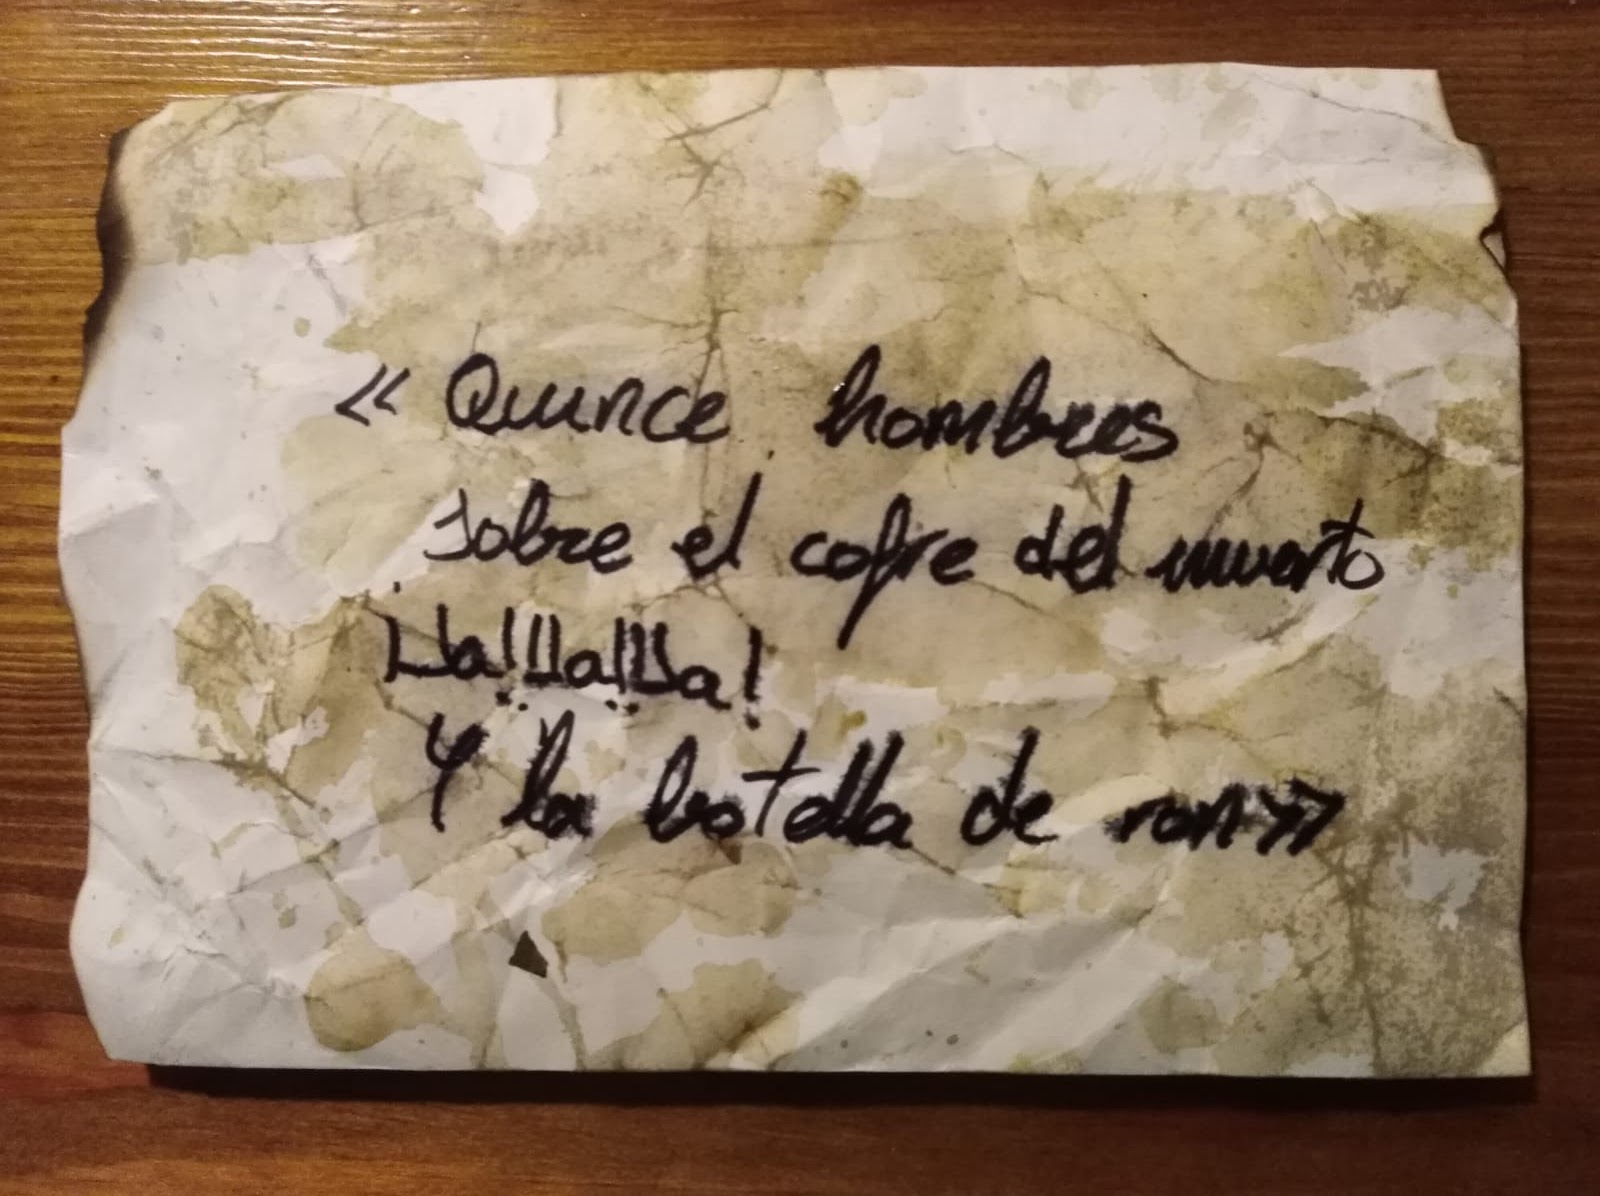 « Quince hombres
sobre el cofre del muerto
¡Ja!¡Ja!¡Ja!
Y la botella de ron»